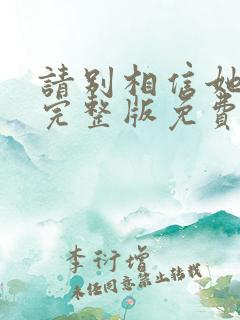 請別相信她
完整版免費
李衍增
未经同意禁止转载